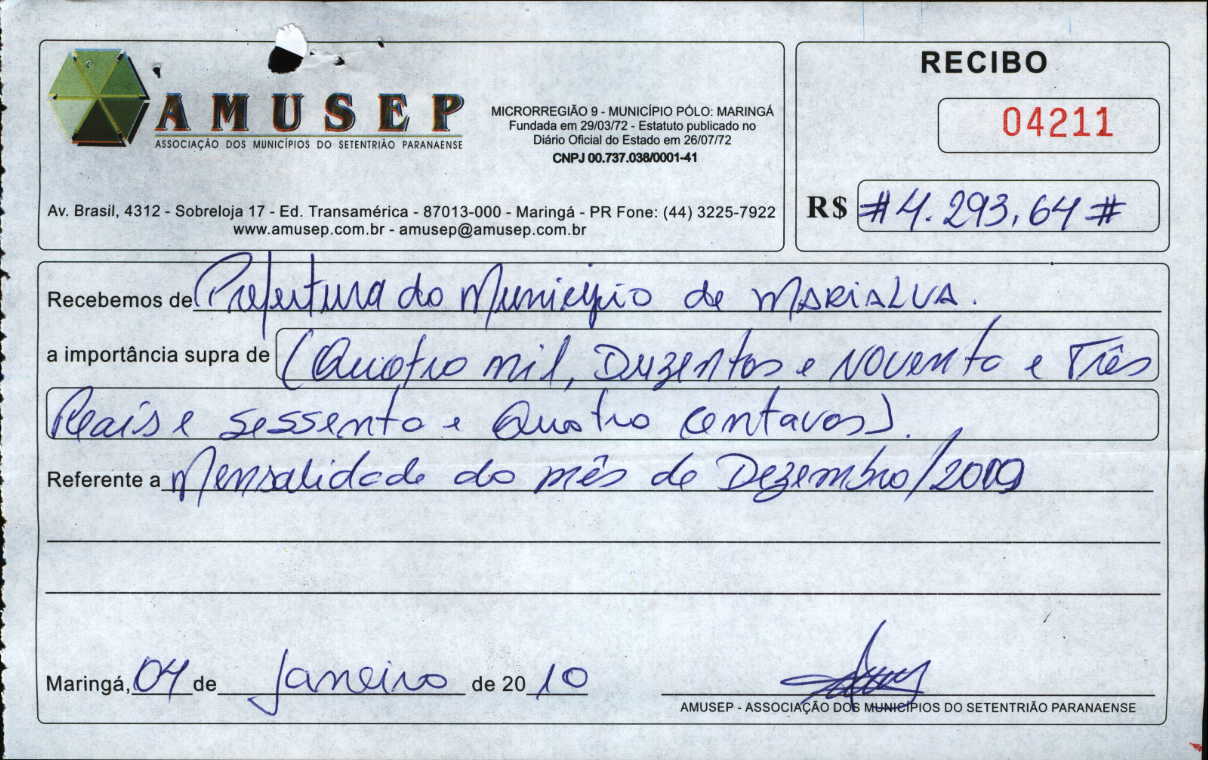 AMUSEP
ASSOCIAÇÃO DOS MUNICÍPIOS DO SETENTRIÃO PARANAENSE
MICRORREGIÃO 9 - MUNICÍPIO PÓLO: MARINGÁ
Fundada em 29/03/72 - Estatuto publicado no
Diário Oficial do Estado em 26/07/72
CNPJ 00.737.038/0001-41
Av. Brasil, 4312 - Sobreloja 17 - Ed. Transamérica - 87013-000 - Maringá - PR Fone: (44) 3225-7922
www.amusep.com.br - amusep@amusep.com.br
RECIBO
04211
R$ #4.293,64#
Recebemos de Prefeitura do Município de MARIALVA.
a importância supra de (Quatro mil, Duzentos e Noventa e Três
Reais e sessenta e Quatro centavos).
Referente a Mensalidade do mês de Dezembro/2009
Maringá, 04 de Janeiro de 2010
AMUSEP - ASSOCIAÇÃO DOS MUNICÍPIOS DO SETENTRIÃO PARANAENSE